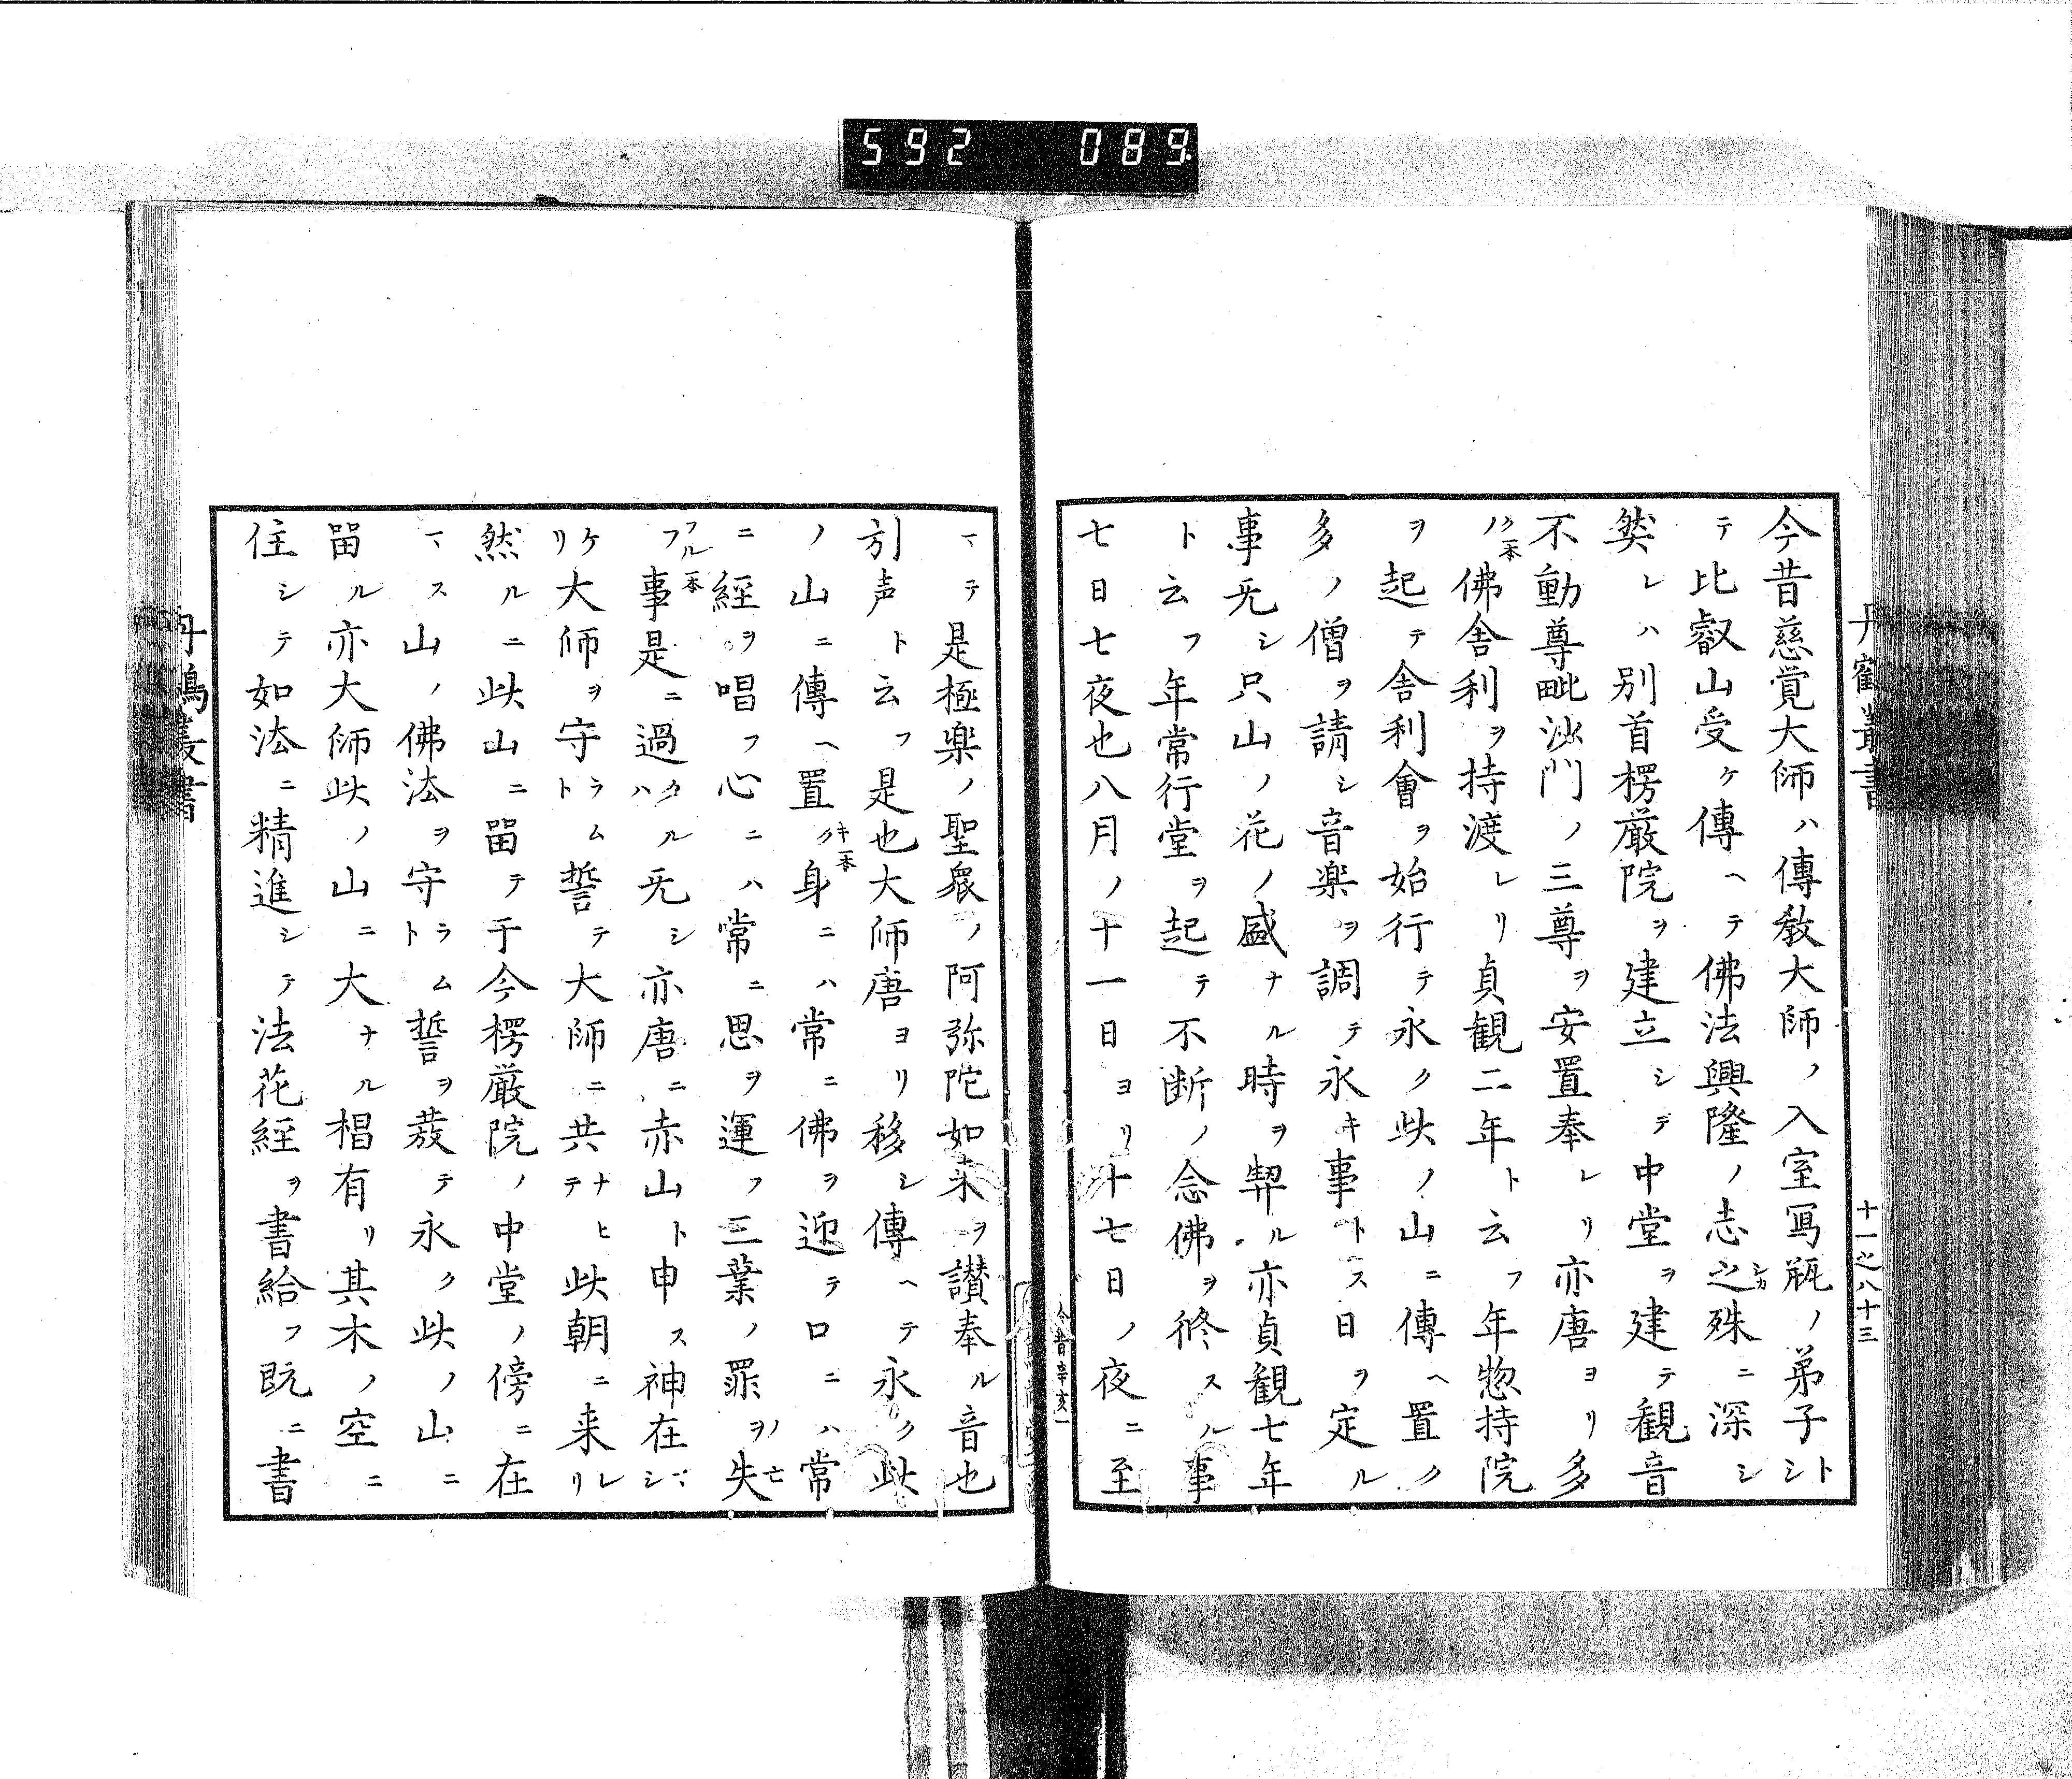 592 089
丹鶴叢書
十一之八十三
今昔慈覚大師ハ傳教大師ノ入室冩瓶ノ弟子トシ
テ比叡山受ケ傳ヘテ佛法興隆ノ志之シカ殊ニ深シ
然レハ別首楞厳院ヲ建立シテ中堂ヲ建テ観音
不動尊毗沙門ノ三尊ヲ安置奉レリ亦唐ヨリ多
ノク一本佛舎利ヲ持渡レリ貞観二年ト云フ年惣持院
ヲ起テ舎利會ヲ始行テ永ク此ノ山ニ傳ヘ置ク
多ノ僧ヲ請シ音楽ヲ調テ永キ事トス日ヲ定ル
事旡シ只山ノ花ノ盛ナル時ヲ契ル亦貞観七年
ト云フ年常行堂ヲ起テ不断ノ念佛ヲ修スル事
七日七夜也八月ノ十一日ヨリ十七日ノ夜ニ至
今昔辛亥一
マテ是極楽ノ聖衆ノ阿弥陀如来ヲ讃奉ル音也
引声ト云フ是也大師唐ヨリ移シ傳ヘテ永ク此
ノ山ニ傳ヘ置クキ一本身ニハ常ニ佛ヲ迎テ口ニハ常
ニ經ヲ唱フ心ニハ常ニ思ヲ運フ三業ノ罪ヲ失
フフル一本事是ニ過タルハ旡シ亦唐ニ赤山ト申ス神在マシ
ケリ大師ヲ守ラムト誓テ大師ニ共ナヒテ此朝ニ来レリ
然ルニ此山ニ畱テ于今楞厳院ノ中堂ノ傍ニ在
マス山ノ佛法ヲ守ラムト誓ヲ發テ永ク此ノ山ニ
畱ル亦大師此ノ山ニ大ナル椙有リ其木ノ空ニ
住シテ如法ニ精進シテ法花經ヲ書給フ既ニ書